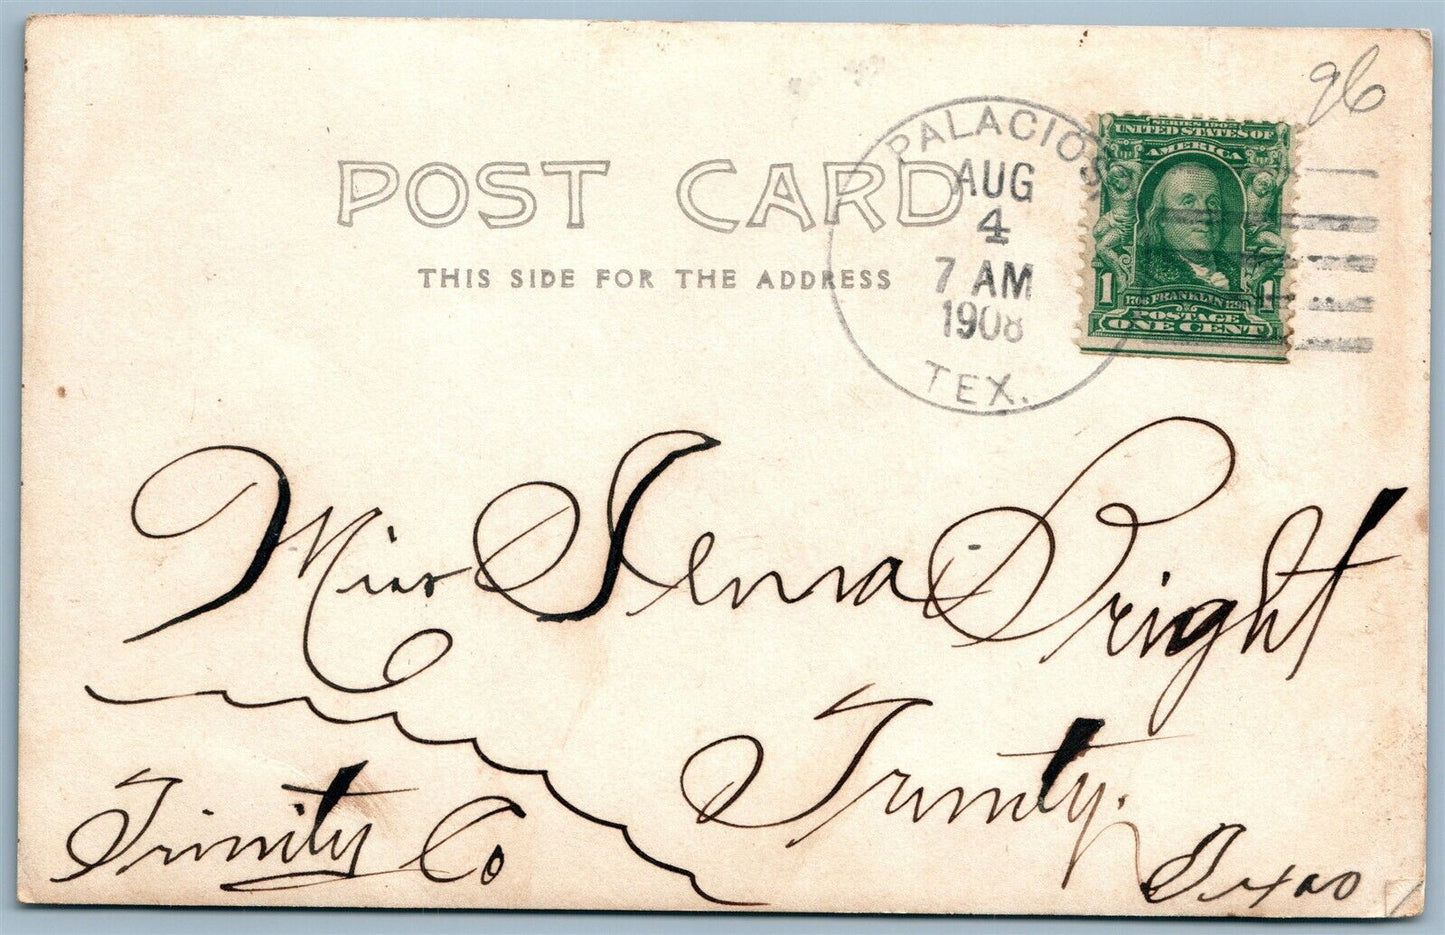 96
PALACIOS
AUG
4
7 AM
1908
TEX.
SERIES 1902
UNITED STATES OF
AMERICA
1 1
1706 FRANKLIN 1790
POSTAGE
ONE CENT
POST CARD
THIS SIDE FOR THE ADDRESS
Miss Lena Pright
Trinity.
Trinity Co
Texas